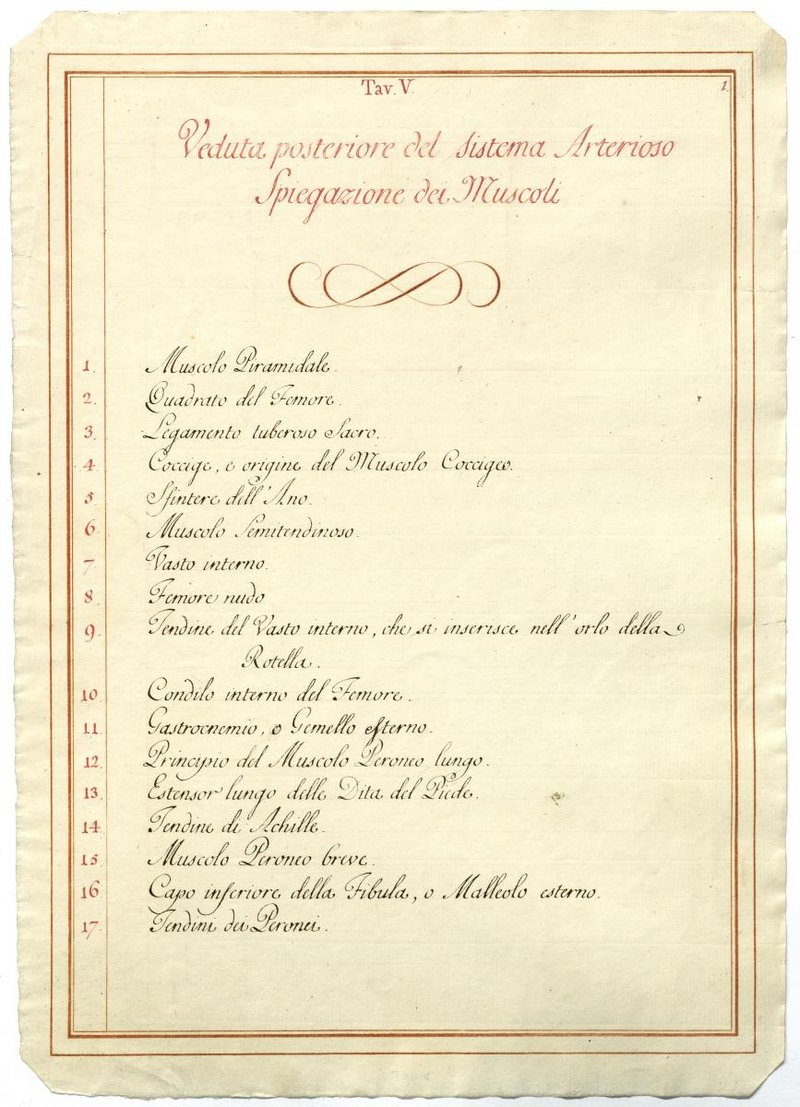 Tav. V.
1.
Veduta posteriore del sistema Arterioso
Spiegazione dei Muscoli
1. Muscolo Piramidale.
2. Quadrato del Femore.
3. Legamento tuberoso Sacro.
4. Coccige, e origine del Muscolo Coccigeo.
5. Sfintere dell'Ano.
6. Muscolo Semitendinoso.
7. Vasto interno.
8. Femore nudo
9. Tendine del Vasto interno, che si inserisce nell'orlo della
Rotella.
10. Condilo interno del Femore.
11. Gastrocnemio, o Gemello esterno.
12. Principio del Muscolo Peroneo lungo.
13. Estensor lungo delle Dita del Piede.
14. Tendine di Achille.
15. Muscolo Peroneo breve.
16 Capo inferiore della Fibula, o Malleolo esterno.
17. Tendini dei Peronei.